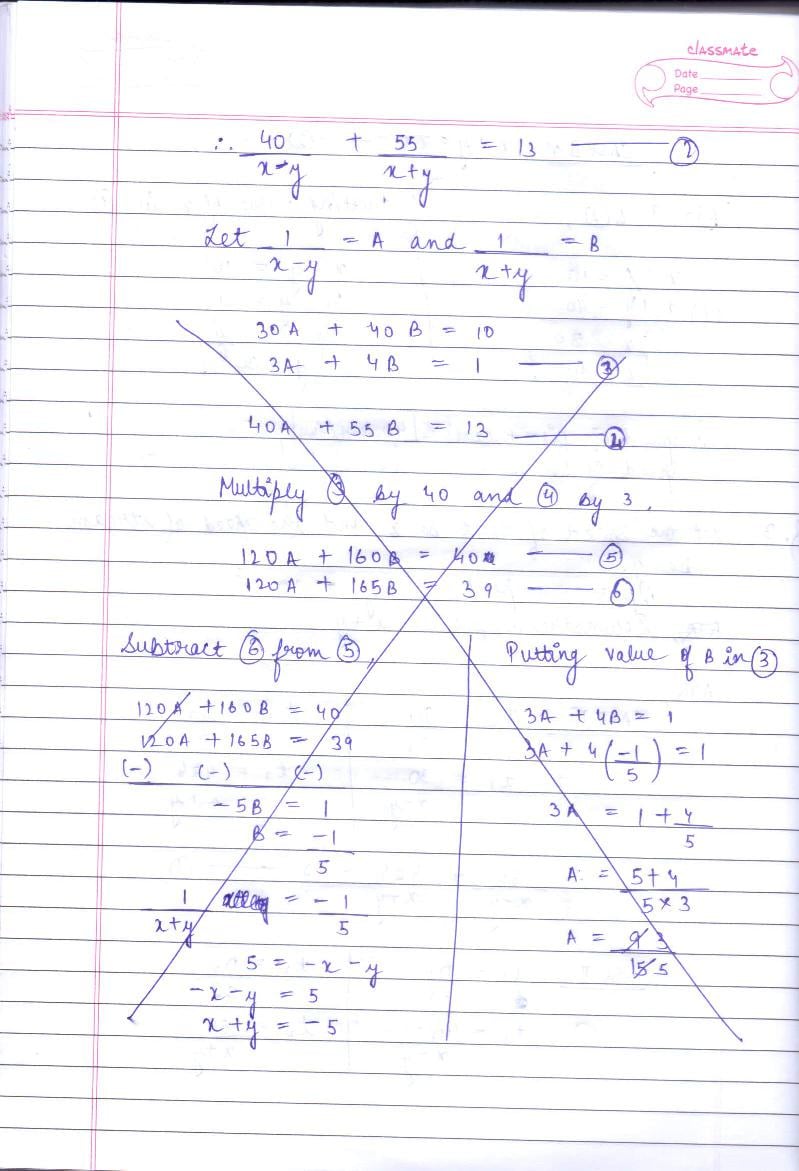 classmate
Date
Page
∴ 40/(x-y) + 55/(x+y) = 13 ——— ②
Let 1/(x-y) = A and 1/(x+y) = B
30A + 40B = 10
3A + 4B = 1 ——— ③
40A + 55B = 13 ——— ④
Multiply ③ by 40 and ④ by 3.
120A + 160B = 40 ——— ⑤
120A + 165B = 39 ——— ⑥
Subtract ⑥ from ⑤,
120A + 160B = 40
120A + 165B = 39
(-) (-) (-)
-5B = 1
B = -1/5
1/(x+y) = -1/5
5 = -x-y
-x-y = 5
x+y = -5
Putting value of B in ③
3A + 4B = 1
3A + 4(-1/5) = 1
3A = 1 + 4/5
A = (5+4)/(5×3)
A = 9 3/15 5